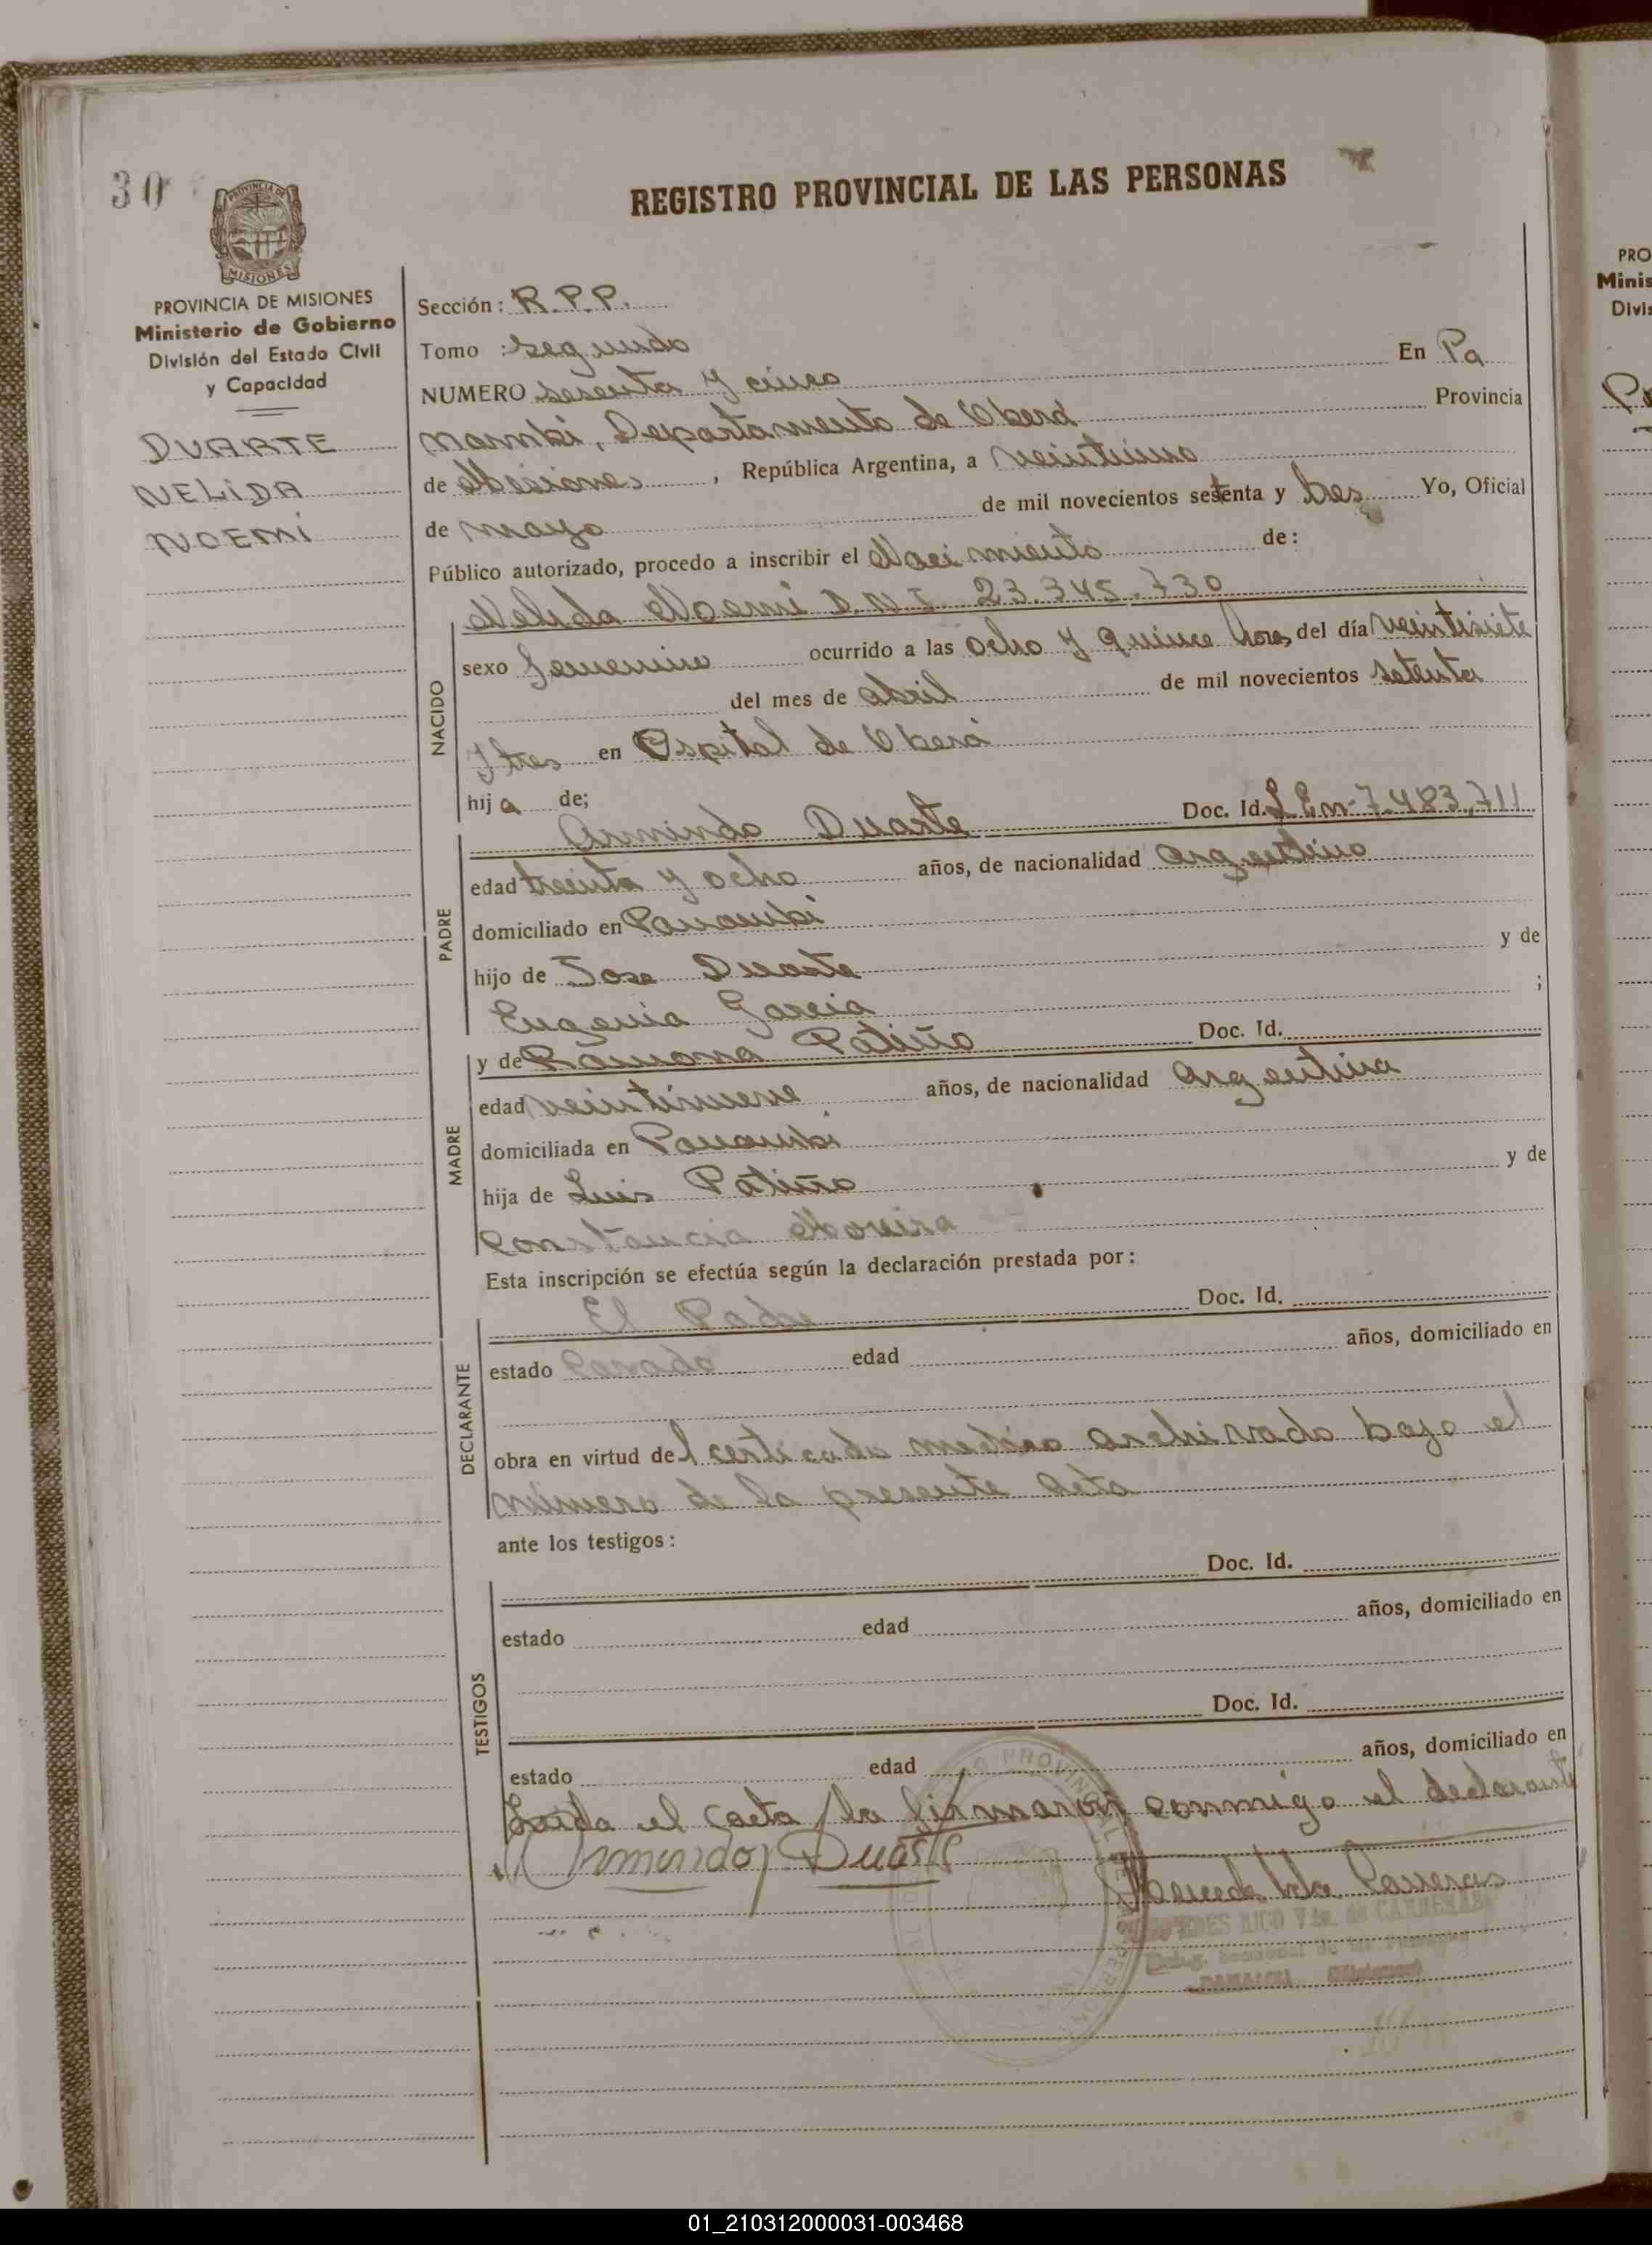 30
REGISTRO PROVINCIAL DE LAS PERSONAS
PROVINCIA DE MISIONES
PROVINCIA DE MISIONES
Ministerio de Gobierno
División del Estado Civil
y Capacidad
DUARTE
NELIDA
NOEMI
Sección: R.P.P.
Tomo : Segundo
NUMERO sesenta y cinco En Pa
nambi, Departamento de Oberá Provincia
de Misiones, República Argentina, a veintiuno
de mayo de mil novecientos setenta y tres Yo, Oficial
Público autorizado, procedo a inscribir el Nacimiento de:
NACIDO
Nelida Noemi D.N.I. 23.345.730
sexo femenino ocurrido a las ocho y quince horas del día veintisiete
del mes de abril de mil novecientos setenta
y tres en Ospital de Oberá
hija de;
PADRE
Armindo Duarte Doc. Id. L En-7.483,711
edad treinta y ocho años, de nacionalidad argentino
domiciliado en Panambi
hijo de Jose Duarte y de
Eugenia Garcia ;
MADRE
y de Ramona Patiño Doc. Id.
edad veintinueve años, de nacionalidad argentina
domiciliada en Panambi
hija de Luis Patiño y de
Constancia Moreira
Esta inscripción se efectúa según la declaración prestada por:
DECLARANTE
El Padre Doc. Id.
estado Casado edad años, domiciliado en
obra en virtud del certicado medico archivado bajo el
número de la presente acta
ante los testigos:
TESTIGOS
Doc. Id.
estado edad años, domiciliado en
Doc. Id.
estado edad años, domiciliado en
Leida el caeta la firmaron conmigo el declarante
Armindo Duarte
Vda. Carreras
RICO Vda. de CARRERAS
PRO
Minis
Divis
01_210312000031-003468